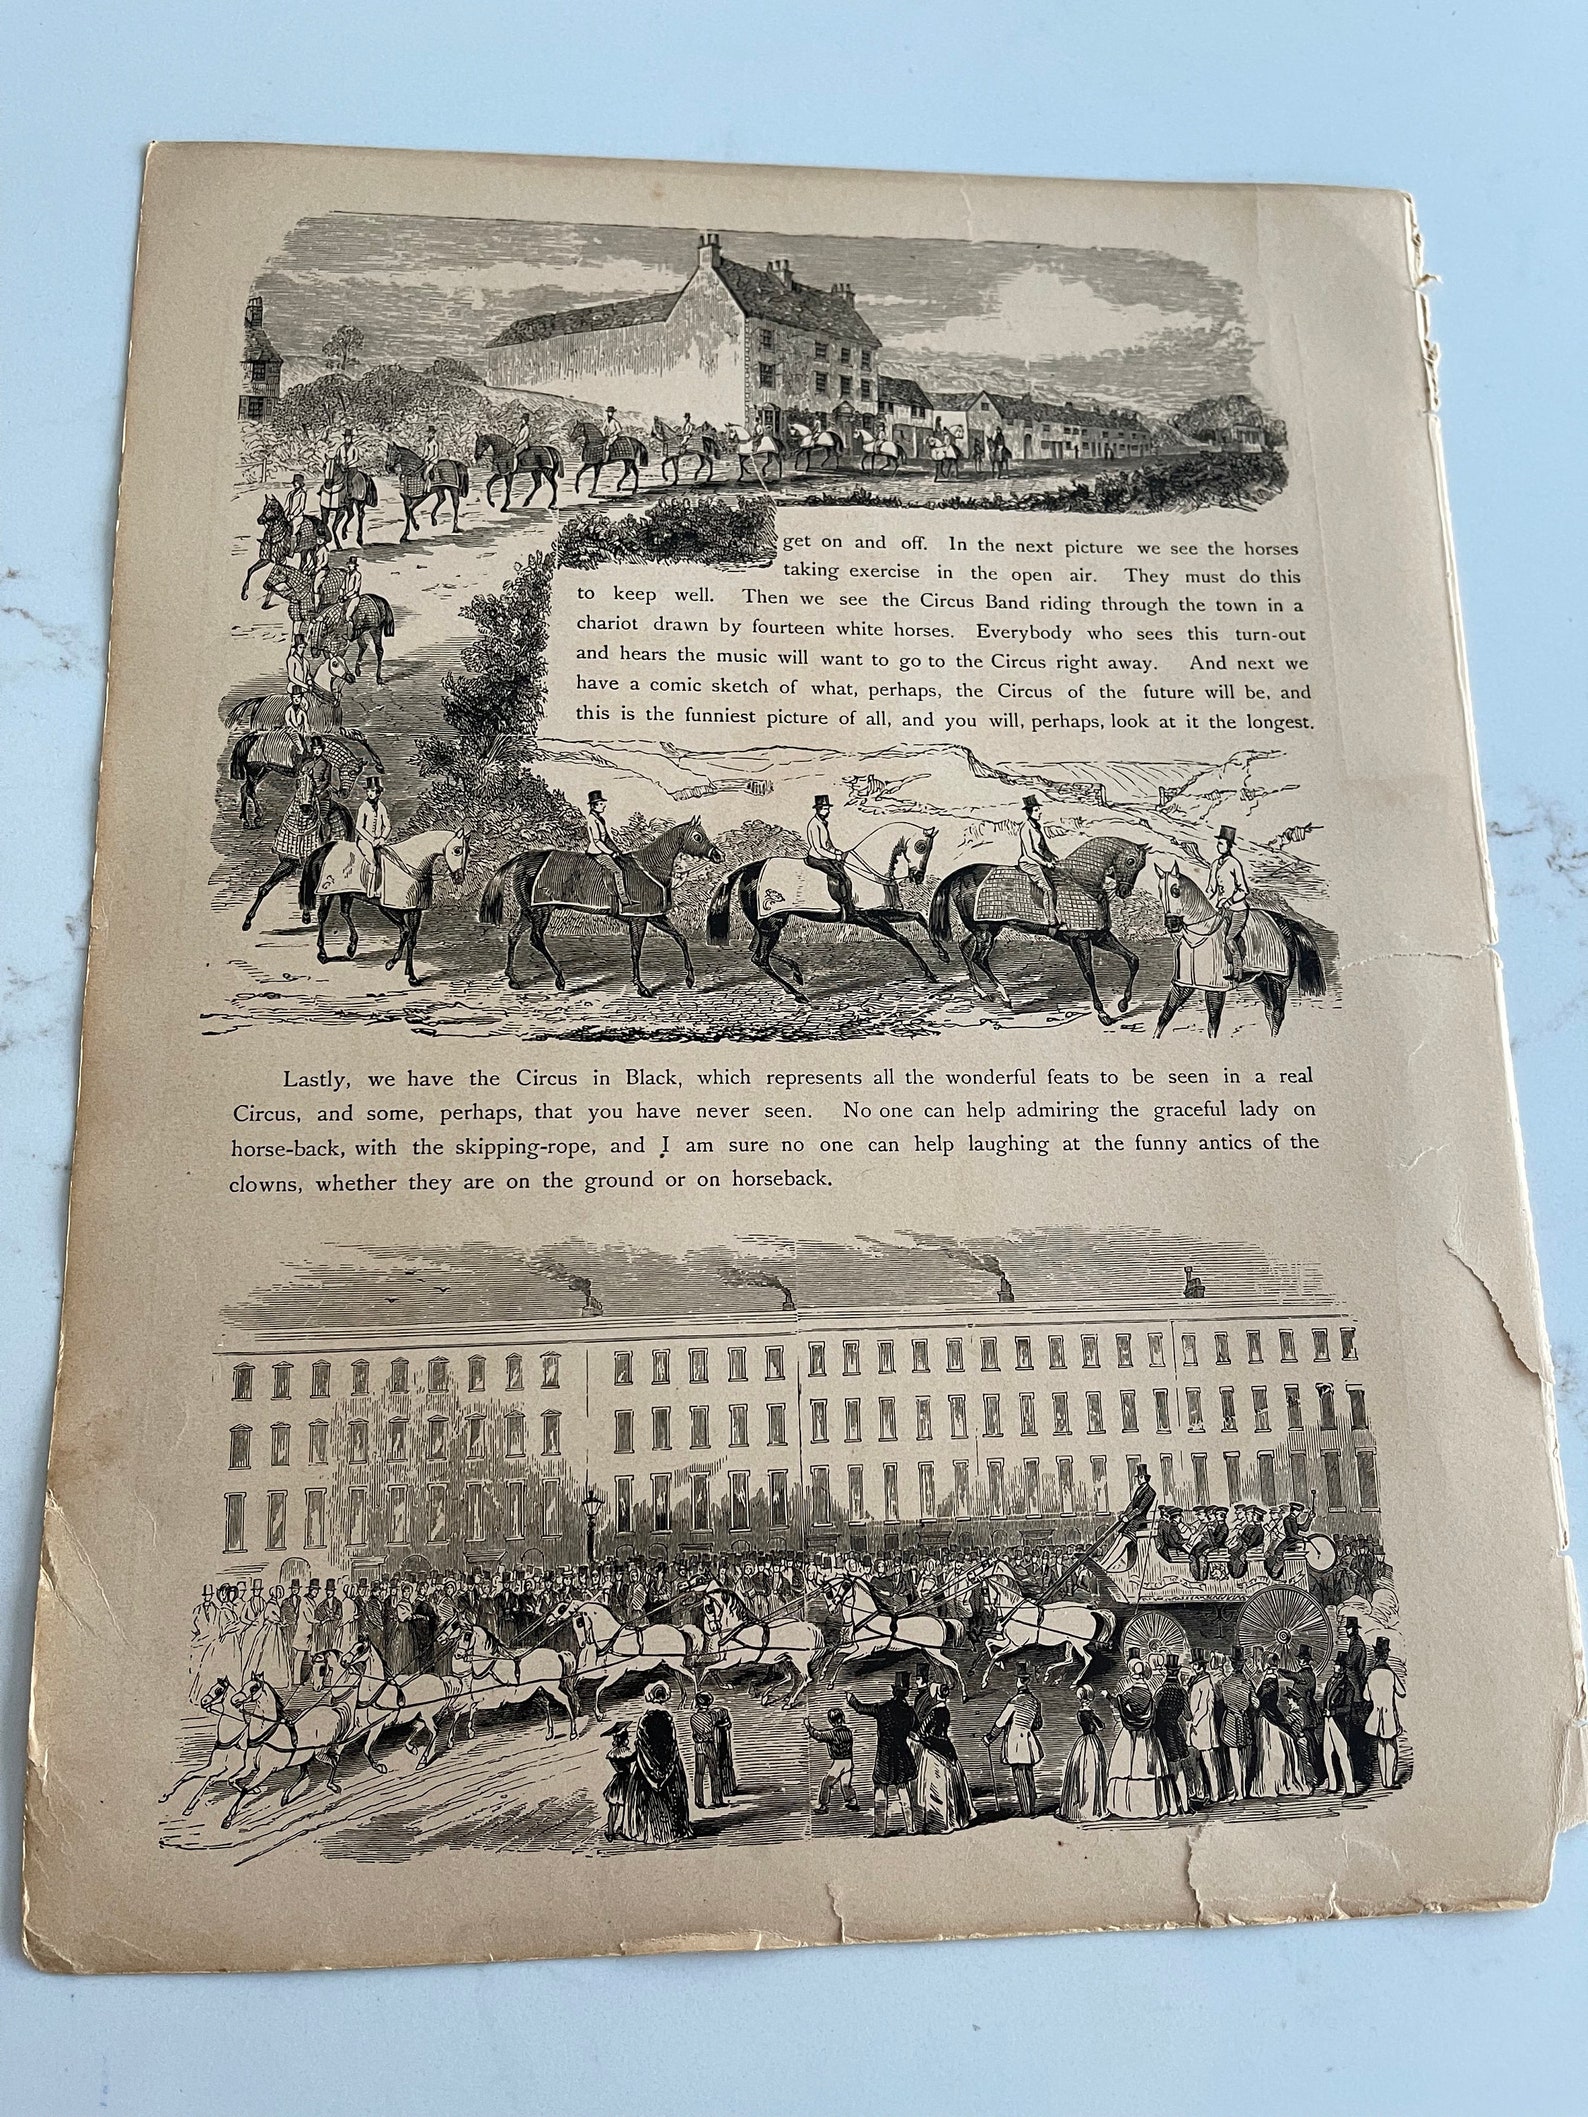 get on and off. In the next picture we see the horses
taking exercise in the open air. They must do this
to keep well. Then we see the Circus Band riding through the town in a
chariot drawn by fourteen white horses. Everybody who sees this turn-out
and hears the music will want to go to the Circus right away. And next we
have a comic sketch of what, perhaps, the Circus of the future will be, and
this is the funniest picture of all, and you will, perhaps, look at it the longest.
Lastly, we have the Circus in Black, which represents all the wonderful feats to be seen in a real
Circus, and some, perhaps, that you have never seen. No one can help admiring the graceful lady on
horse-back, with the skipping-rope, and I am sure no one can help laughing at the funny antics of the
clowns, whether they are on the ground or on horseback.